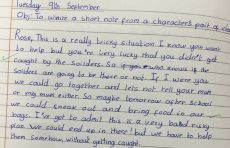 Tuesday 9th September
Obj: To write a short note from a character's point of view
Rose, This is a really tricky situation I know you want
to help but you're very lucky that you didn't get
caught by the soldiers. So if you who knows if the
soldiers are going to be there or not. If I were you
we could go together and lets not tell your mum
or my own either. So maybe tomorrow after school
we could sneak out and bring food in our
bags. I've got to admit this is a very risky
plan. We could end up in there! but we have to help
them somehow, without getting caught.